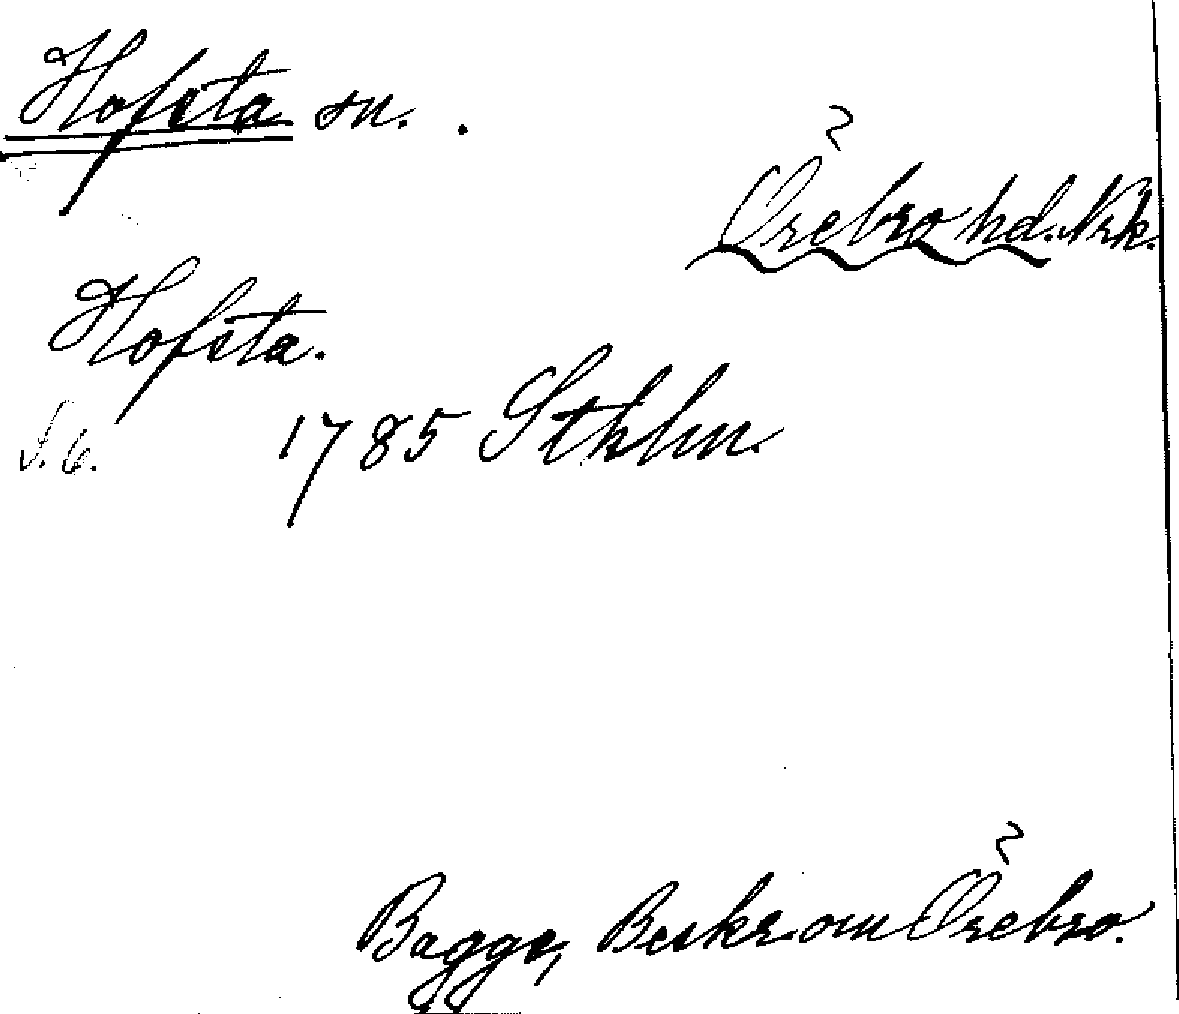 Hofsta sn.
Örebro hd. Nrk.
Hofsta.
S. 6. 1785 Sthlm.
Bagge, Beskr. om Örebro.